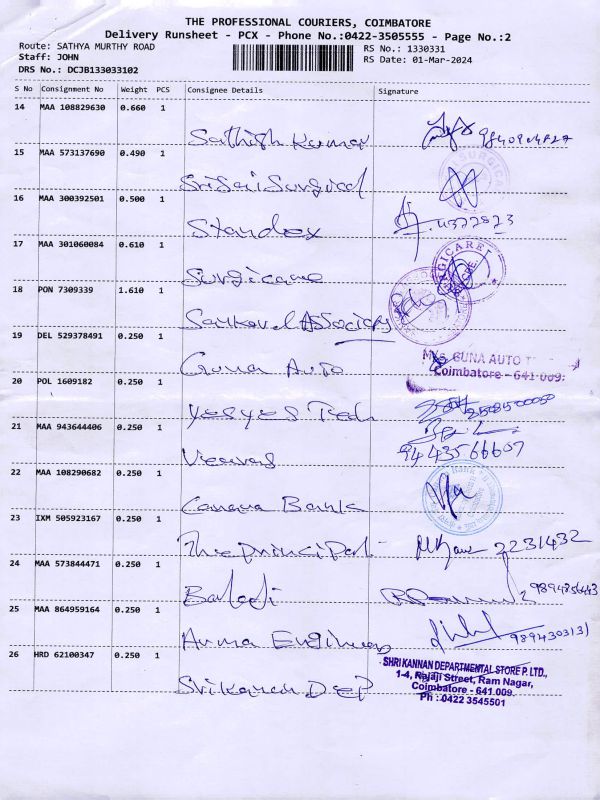 THE PROFESSIONAL COURIERS, COIMBATORE
Delivery Runsheet - PCX - Phone No.:0422-3505555 - Page No.:2
Route: SATHYA MURTHY ROAD
RS No.: 1330331
Staff: JOHN
RS Date: 01-Mar-2024
DRS No.: DCJB133033102
S No Consignment No Weight PCS Consignee Details Signature
14 MAA 108829630 0.660 1
Sathish Kumar
15 MAA 573137690 0.490 1
Sri Sai Surgical
16 MAA 300392501 0.500 1
Standex
17 MAA 301060084 0.610 1
Surgicare SURGICARE
18 PON 7309339 1.610 1
Associates
19 DEL 529378491 0.250 1
M/s. GUNA AUTO
Guna Auto Coimbatore - 641 009.
20 POL 1609182 0.250 1
Yesyes Tech
21 MAA 943644406 0.250 1
9443566607
22 MAA 108290682 0.250 1
Canara Bank
23 IXM 505923167 0.250 1
The principal 2231432
24 MAA 573844471 0.250 1
Balaji
25 MAA 864959164 0.250 1
26 HRD 62100347 0.250 1
SHRI KANNAN DEPARTMENTAL STORE P. LTD.,
1-4, Rajaji Street, Ram Nagar,
Coimbatore - 641 009.
Srikannan Dep
Ph : 0422 3545501